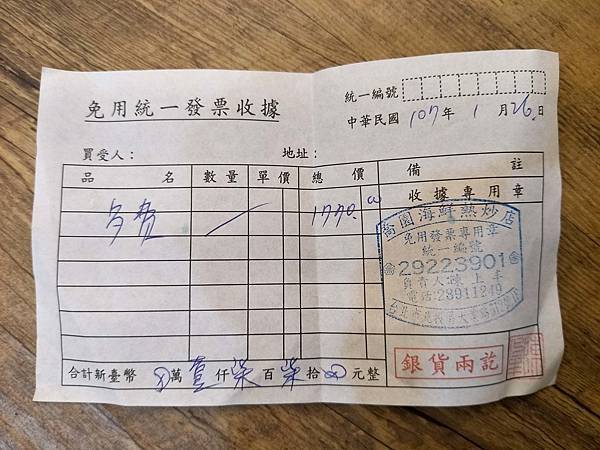 免用統一發票收據
統一編號
中華民國 107 年 1 月 26 日
買受人： 地址：
品 名 數量 單價 總 價 備 註
收據專用章
餐費 1770.00
園海鮮熱炒店
免用發票專用章
統一編號
29223901
負責人:陳
電話:28911249
台北市北投區大業路
合計新臺幣 萬 壹 仟 柒 百 柒 拾 元整
銀貨兩訖